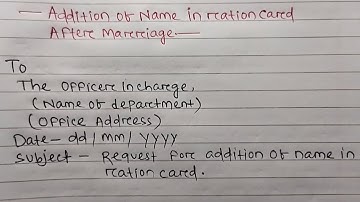 — Addition of Name in ration card
After Marriage —
To
The officer incharge,
(Name of department)
(Office Address)
Date - dd/mm/yyyy
Subject - Request for addition of name in
ration card.